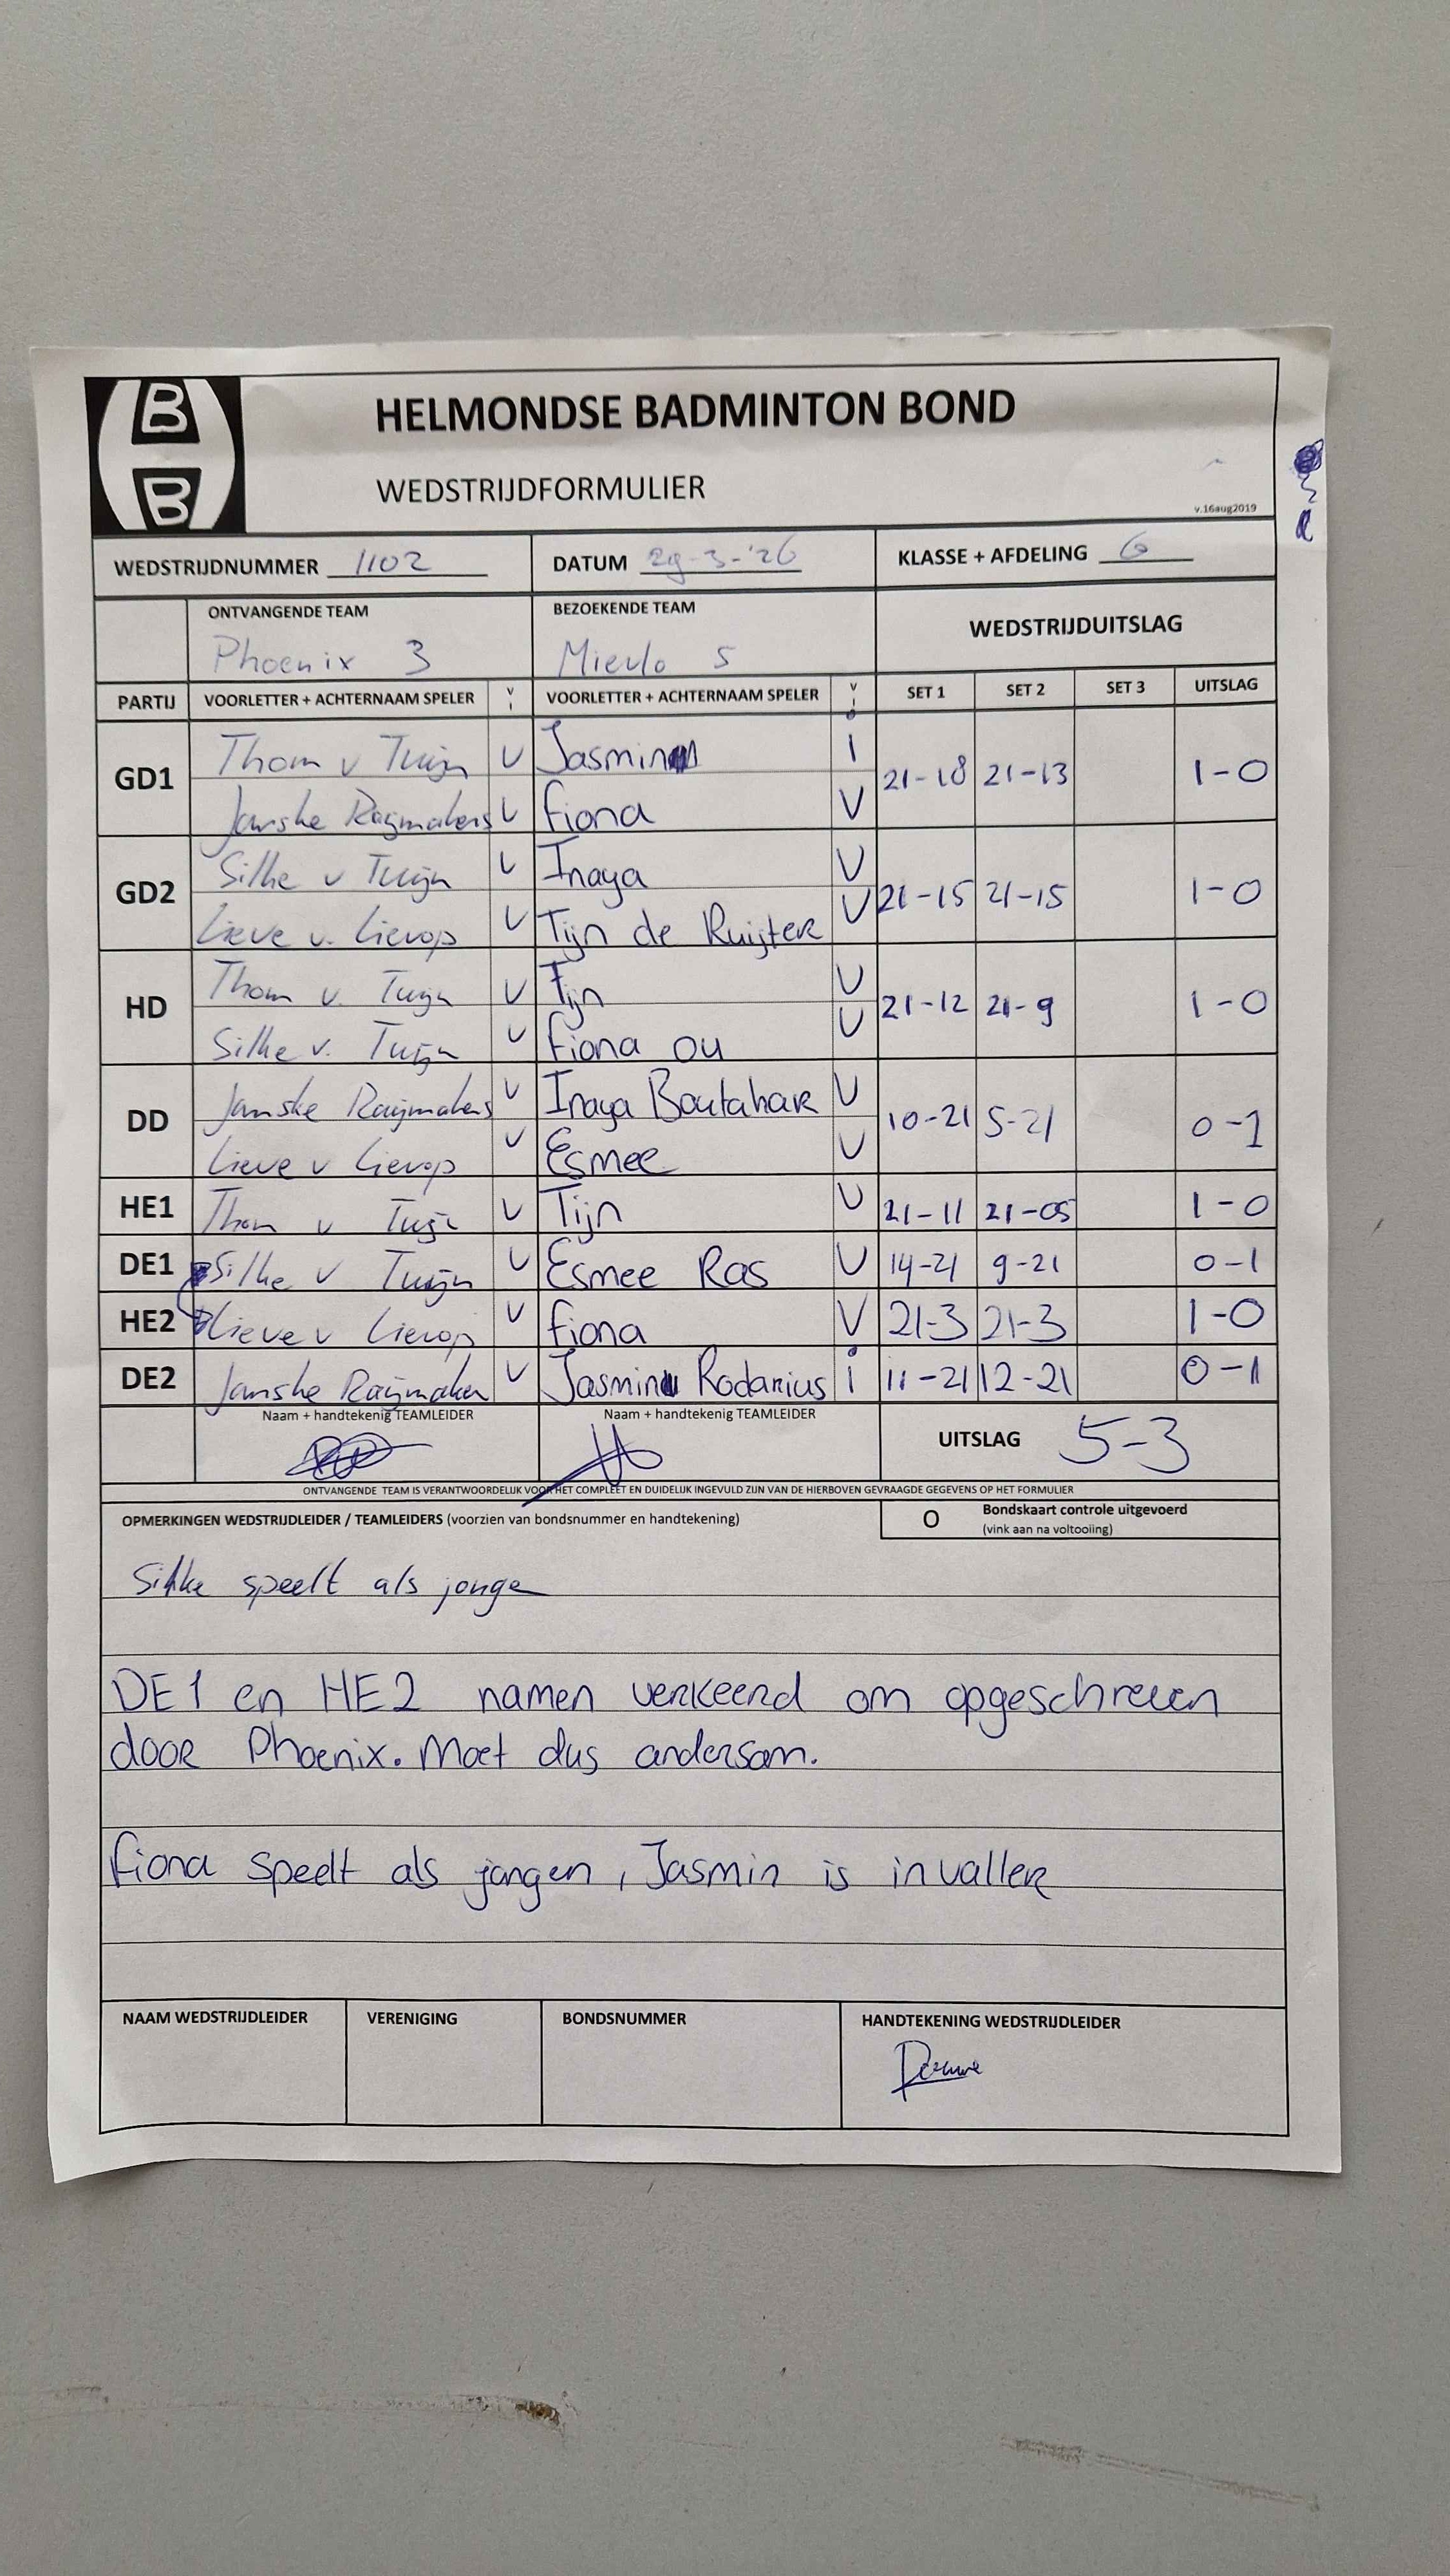 B
B
HELMONDSE BADMINTON BOND
WEDSTRIJDFORMULIER
v.16aug2019
WEDSTRIJDNUMMER 1102 DATUM 29-3-'26 KLASSE + AFDELING 6
ONTVANGENDE TEAM BEZOEKENDE TEAM WEDSTRIJDUITSLAG
Phoenix 3 Mierlo 5
PARTIJ VOORLETTER + ACHTERNAAM SPELER V I VOORLETTER + ACHTERNAAM SPELER V I SET 1 SET 2 SET 3 UITSLAG
GD1 Thom v Tuijn V Jasmin i 21-18 21-13 1-0
Janske Raijmakers V Fiona V
GD2 Silke v Tuijn V Inaya V 21-15 21-15 1-0
Lieve v. Lierop V Tijn de Ruijter V
HD Thom v. Tuijn V Tijn V 21-12 21-9 1-0
Silke v. Tuijn V Fiona ou V
DD Janske Raijmakers V Inaya Boutahar V 10-21 5-21 0-1
Lieve v Lierop V Esmee V
HE1 Thom v Tuijn V Tijn V 21-11 21-05 1-0
DE1 Silke v Tuijn V Esmee Ras V 14-21 9-21 0-1
HE2 Lieve v Lierop V Fiona V 21-3 21-3 1-0
DE2 Janske Raijmaker V Jasmin Rodarius i 11-21 12-21 0-1
Naam + handtekenig TEAMLEIDER Naam + handtekenig TEAMLEIDER UITSLAG 5-3
ONTVANGENDE TEAM IS VERANTWOORDELIJK VOOR HET COMPLEET EN DUIDELIJK INGEVULD ZIJN VAN DE HIERBOVEN GEVRAAGDE GEGEVENS OP HET FORMULIER
OPMERKINGEN WEDSTRIJDLEIDER / TEAMLEIDERS (voorzien van bondsnummer en handtekening) O Bondskaart controle uitgevoerd
(vink aan na voltooiing)
Silke speelt als jonge
DE1 en HE2 namen verkeerd om opgeschreven
door Phoenix. Moet dus andersom.
Fiona speelt als jongen, Jasmin is invaller
NAAM WEDSTRIJDLEIDER VERENIGING BONDSNUMMER HANDTEKENING WEDSTRIJDLEIDER